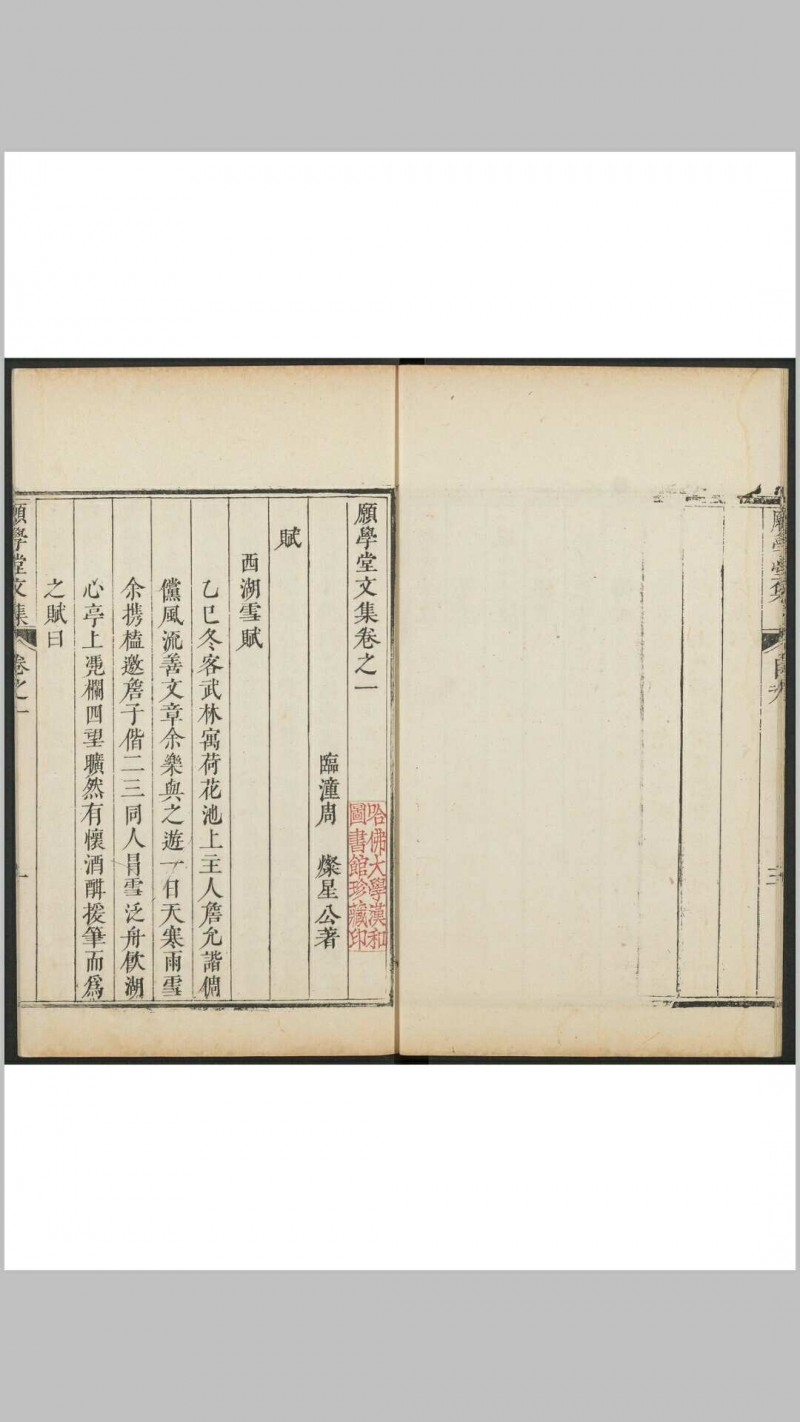 願學堂集
三
願學堂文集卷之一
哈佛大學漢和
圖書館珍藏印
臨潼周 燦星公著
賦
西湖雪賦
乙巳冬客武林寓荷花池上主人詹允諧倜
儻風流善文章余樂與之遊一日天寒雨雪
余携榼邀詹子偕二三同人冐雪泛舟飲湖
心亭上凴欄四望曠然有懷酒酣援筆而為
之賦曰
願學堂文集
卷之一
一